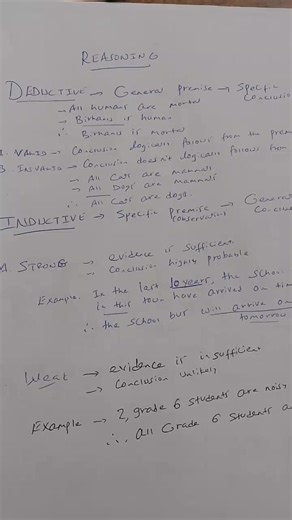 REASONING
DEDUCTIVE → General Premise → Specific Conclusio
- All humans are morta
- Birhanu is human
∴ Birhanu is mortal
VALID → Conclusion logically follows from the prem
B INVALID → Conclusion doesn't logically follows from
- All Cats are mammals
- All Dogs are mammals
∴ All Cats are dogs.
INDUCTIVE → Specific Premise → General
observations Conclu
A STRONG → evidence is sufficient
→ Conclusion highly probable
Example. In the last 10 years, the school
in this town have arrived on tim
∴ the School bus will arrive on
tomorrow
Weak → evidence is insufficient
→ Conclusion Unlikely
Example → 2, grade 6 Students are nois
∴ All Grade 6 Students a